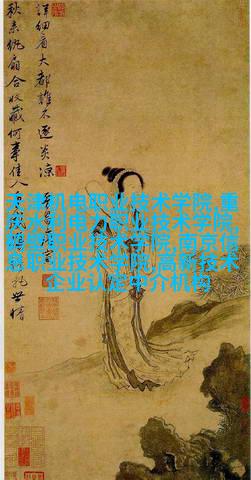 秋来紈扇合收藏何事佳人重感傷請把世情
詳細看大都誰不逐炎凉
天津机电职业技术学院,重
庆水利电力职业技术学院,
鹤壁职业技术学院,南京信
息职业技术学院,高新技术
企业认定中介机构